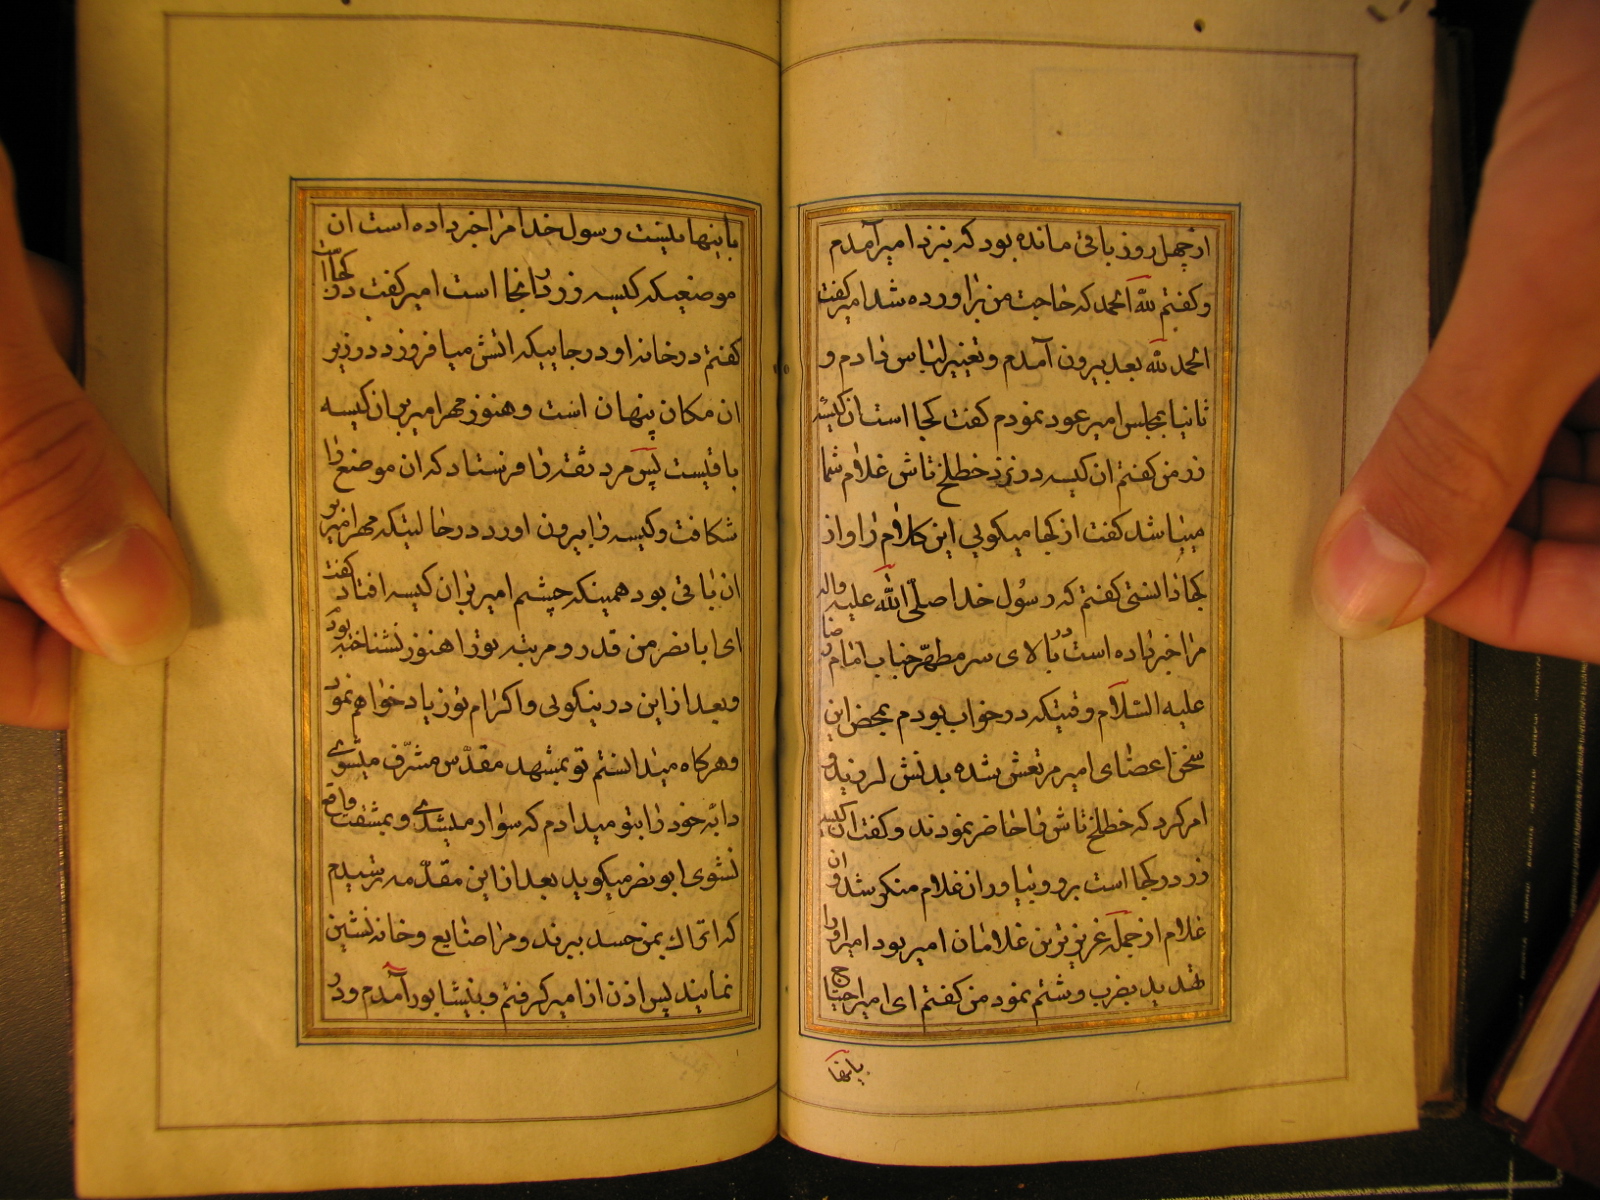 از چهل روز باقی مانده بود که بنزد امیر آمدم
و گفتم لله الحمد که حاجت من براورده شد امیر گفت
الحمد لله بعد بیرون آمدم و تغییر لباس دادم و
ثانیا بمجلس امیر عود نمودم گفت کجا است ان کیسه
زر من گفتم ان کیسه در نزد خطلخ تاش غلام شما
میباشد گفت از کجا میکویی این کلام را و از
کجا دانستی گفتم که رسول خدا صلی الله علیه واله
مرا خبر داده است در بالای سر مطهر جناب امام رضا
علیه السلام وقتیکه در خواب بودم بمحض این
سخن اعضای امیر مرتعش شده بدنش لرزید و
امر کرد که خطلخ تاش را حاضر نمودند و گفت ان کیسه
زر در کجا است برو و بیاور ان غلام منکر شد و ان
غلام از جمله عزیزترین غلامان امیر بود امیر او را
تهدید بضرب و شتم نمود من گفتم ای امیر احتیاج
باینها
باینها نیست رسول خدا مرا خبر داده است ان
موضعیکه کیسه زر در انجا است امیر گفت در کجا است
گفتم در خانه او در جاییکه اتش میافروزد در زیر
ان مکان پنهان است و هنوز مهر امیر بران کیسه
باقیست پس مرد ثقه را فرستاد که ان موضع را
شکافت و کیسه را بیرون اورد در حالیتکه مهر امیر بر
ان باقی بود همینکه چشم امیر بران کیسه افتاد گفت
ای ابا نصر من قدر و مرتبه تو را هنوز نشناخته بودم
و بعد از این در نیکویی و اکرام تو زیاد خواهم نمود
و هرکاه میدانستم تو بمشهد مقدس مشرف میشوی
دابه خود را بتو میدادم که سوار میشدی و بمشقت واقع
نشوی ابو نصر میکوید بعد از این مقدمه ترسیدم
که اتراك بمن حسد ببرند و مرا ضایع و خانه نشین
نمایند پس اذن از امیر گرفتم و بنیشابور آمدم و در